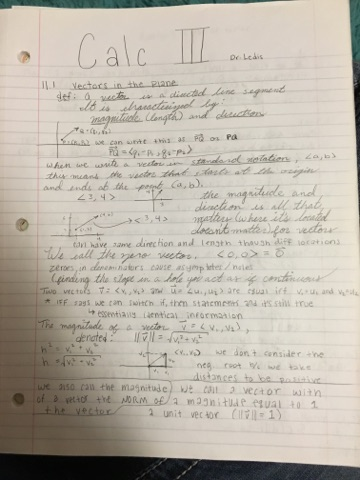 Calc III
Dr. Ledis
11.1 Vectors in the Plane
def: a vector is a directed line segment
It is characterized by:
magnitude (length) and direction
we can write this as PQ or PQ
PQ = <q₁-p₁, q₂-p₂>
when we write a vector in standard notation, <a,b>
this means the vector that starts at the origin
and ends at the point (a,b).
<3,4>
the magnitude and
direction is all that
<3,4>
matters (where it's located
doesn't matter) for vectors
can have same direction and length though diff locations
We call the zero vector, <0,0> = 0
zeros in denominators cause asymptotes / holes
(finding the slope in a hole you act as if continuous
Two vectors v = <v₁, v₂> and u = <u₁, u₂> are equal iff v₁=u₁ and v₂=u₂
* iff says we can switch if, then statements and it's still true
↳ essentially identical information
The magnitude of a vector v = <v₁, v₂>,
denoted: ||v|| = √v₁² + v₂²
h² = v₁² + v₂²
<v₁, v₂>
we don't consider the
neg. root b/c we take
distances to be positive
we also call the magnitude
of a vector the NORM of
the vector
we call a vector with
a magnitude equal to 1
a unit vector (||v|| = 1)